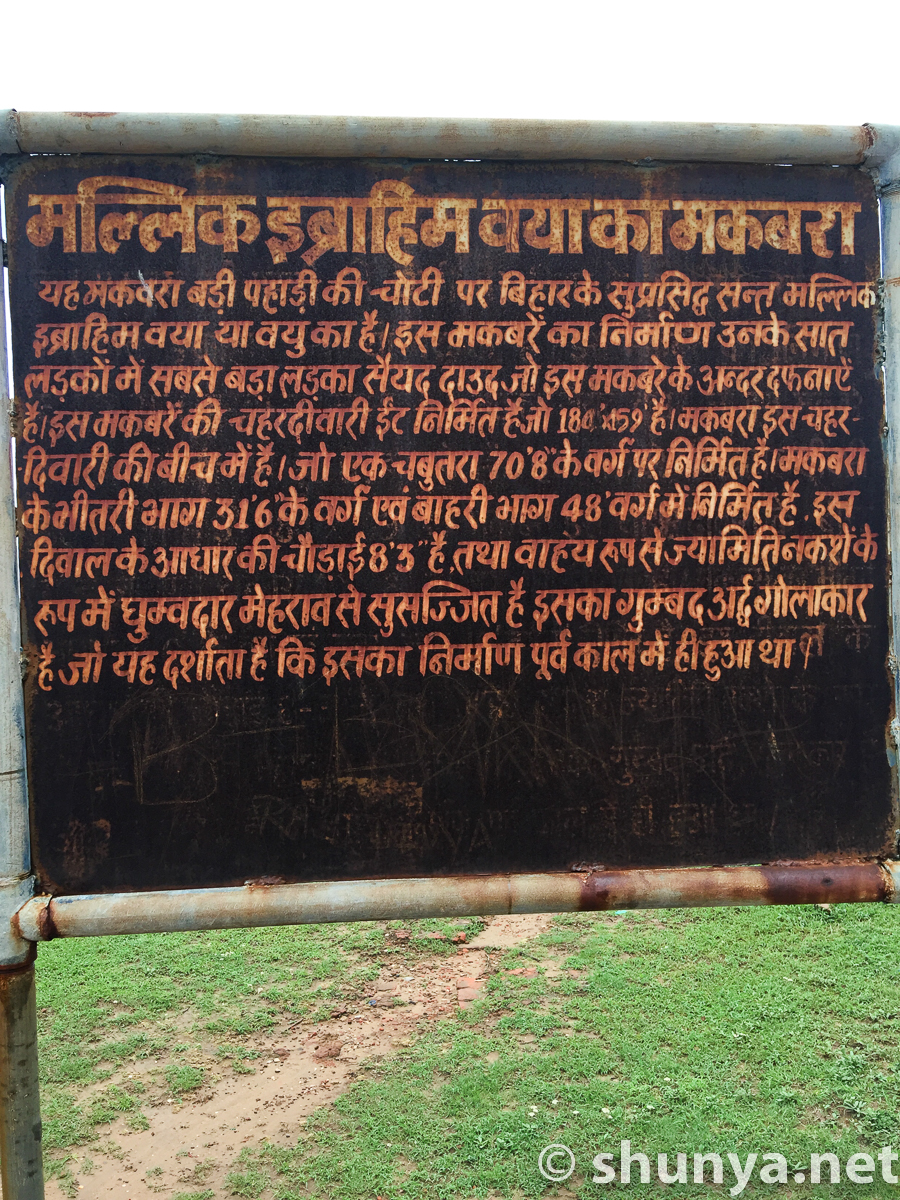 मल्लिक इब्राहिम वया का मकबरा
यह मकवरा बड़ी पहाड़ी की चोटी पर बिहार के सुप्रसिद्ध सन्त मल्लिक
इब्राहिम वया या वयु का है। इस मकबरें का निर्माण उनके सात
लड़कों में सबसे बड़ा लड़का सैयद दाउद जो इस मकबरे के अन्दर दफनाऐं
है। इस मकबरें की चहरदीवारी ईंट निर्मित है जो है। मकबरा इस चहर-
दिवारी की बीच में है। जो एक चबुतरा 70'8" के वर्ग पर निर्मित है। मकबरा
के भीतरी भाग 31'6" के वर्ग एवं बाहरी भाग 48' वर्ग में निर्मित है. इस
दिवाल के आधार की चौड़ाई 8'3" है, तथा वाहय रूप से ज्यामिति नकशें के
रूप में घुम्वदार मेहराव से सुसज्जित है इसका गुम्बद अर्द्ध गोलाकार
है, जो यह दर्शाता है कि इसका निर्माण पूर्व काल में ही हुआ था।
© shunya.net